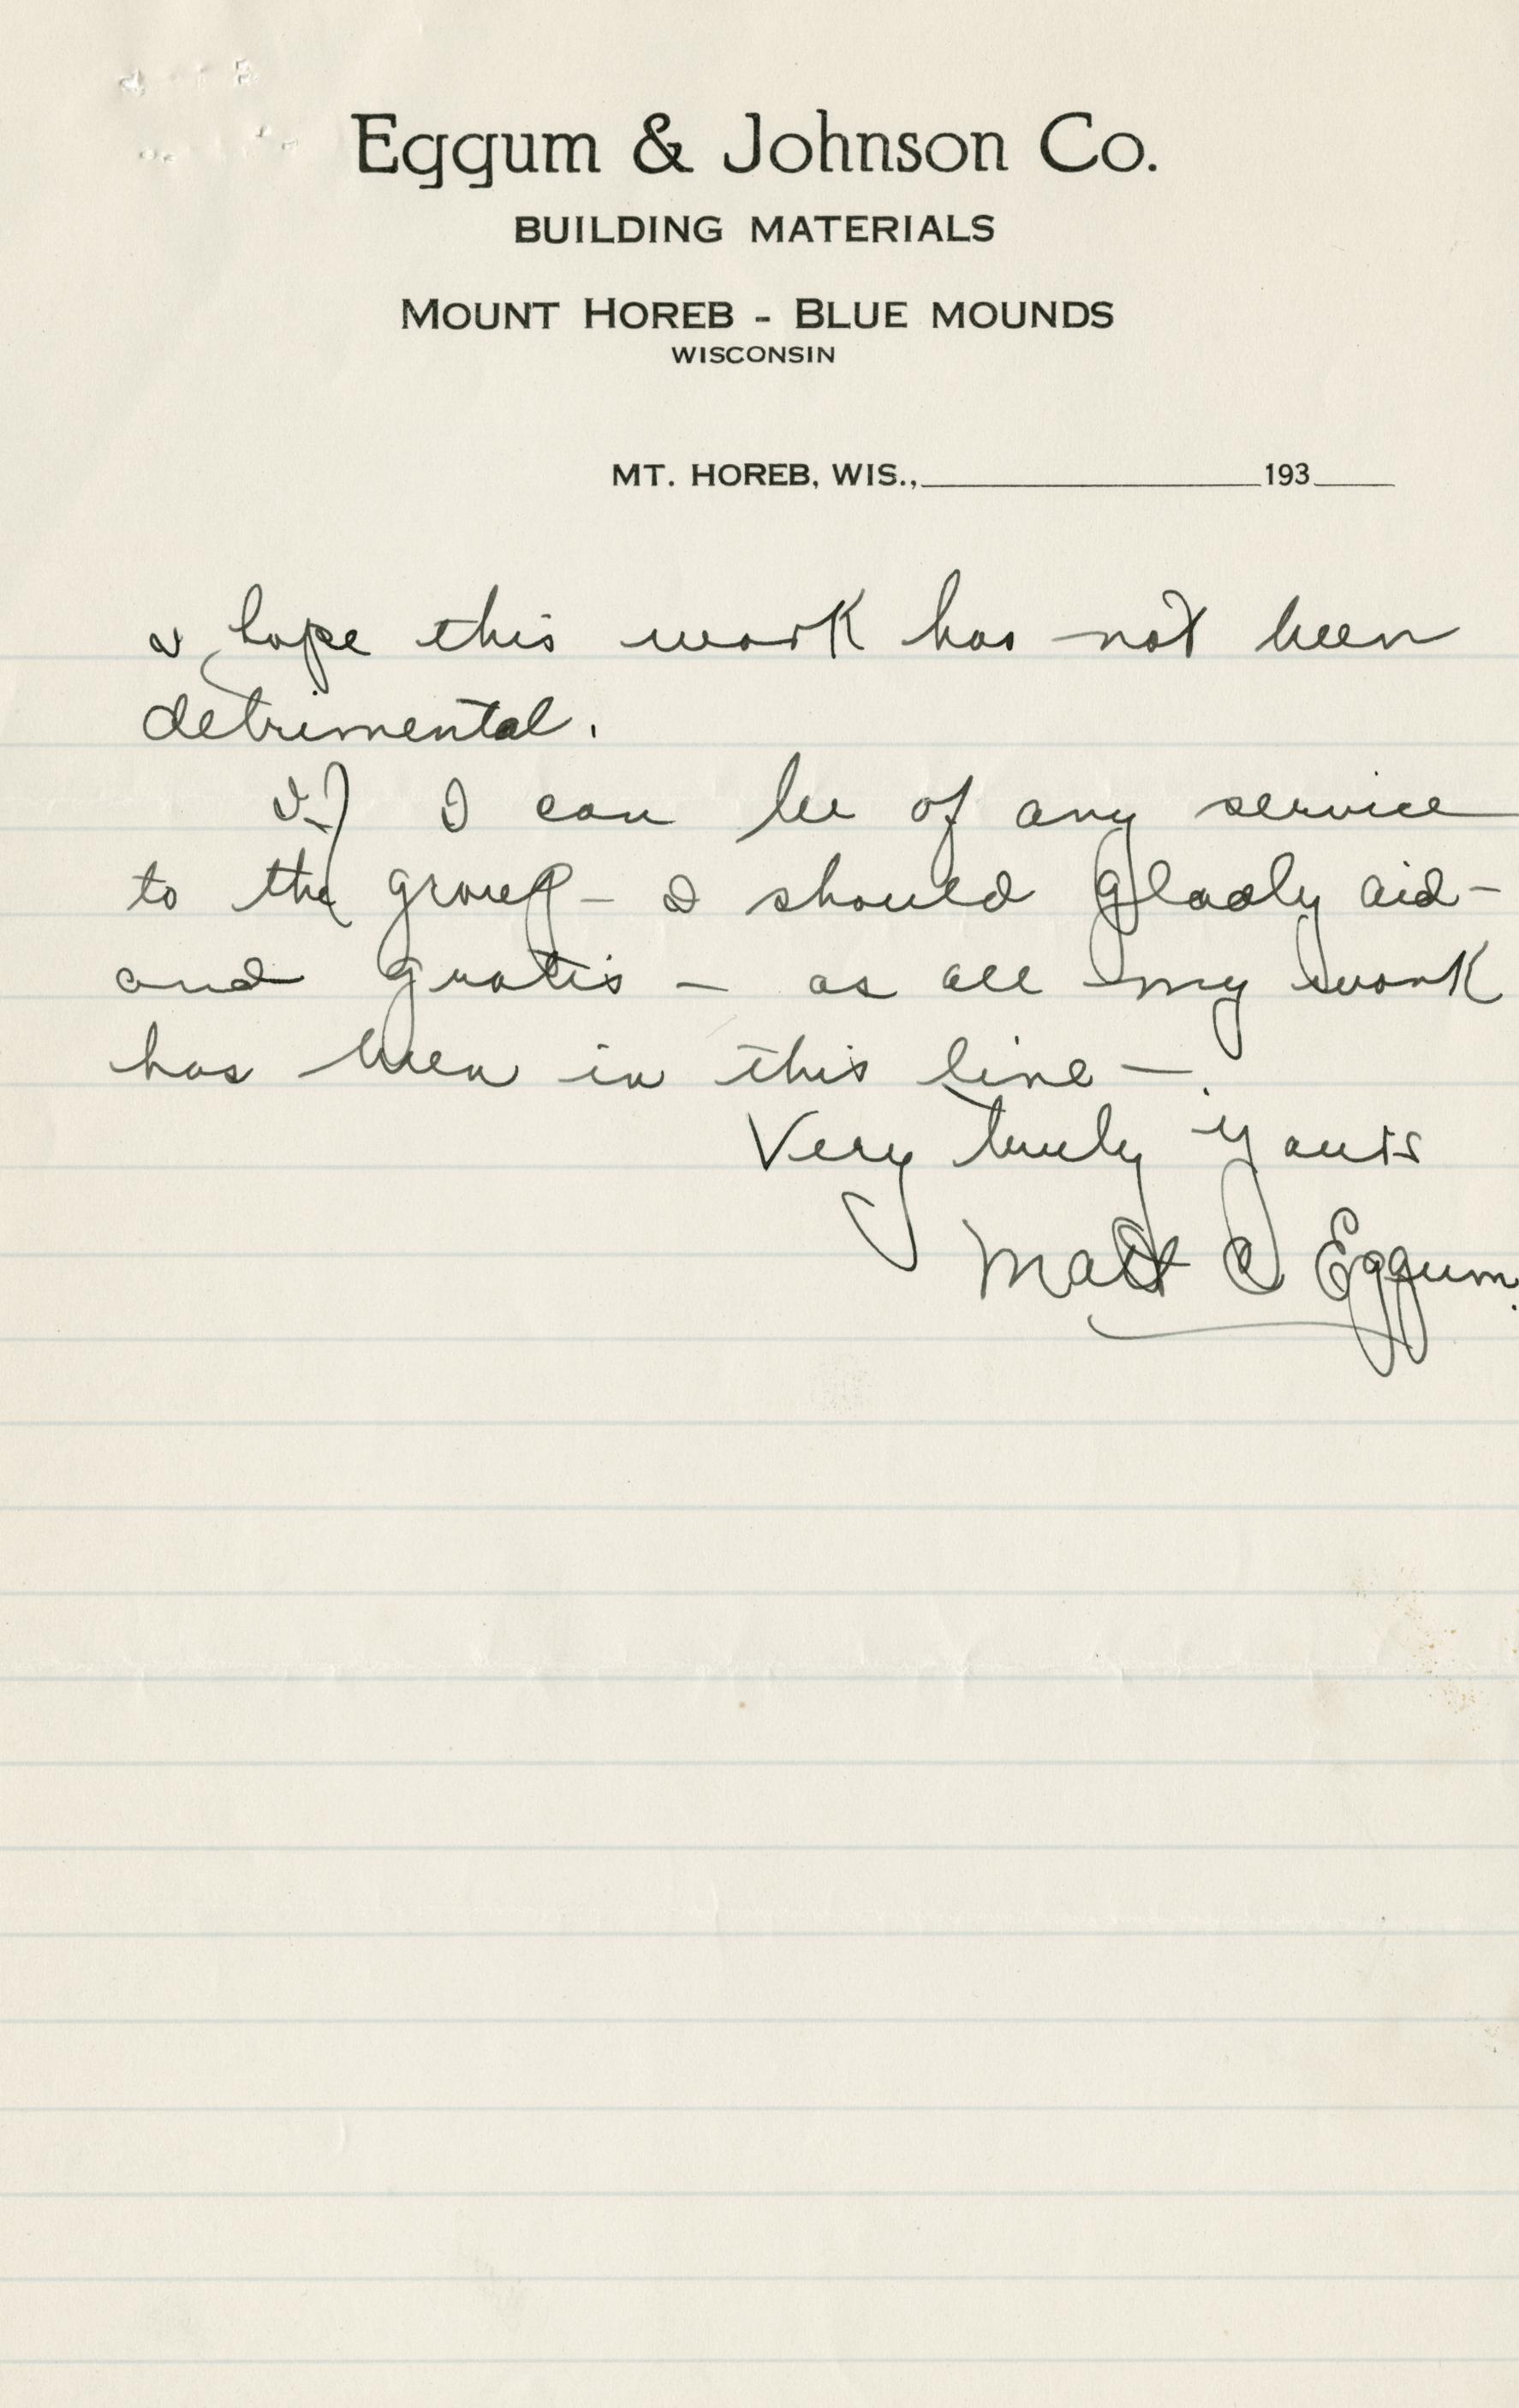 Eggum & Johnson Co.
BUILDING MATERIALS
MOUNT HOREB - BLUE MOUNDS
WISCONSIN
MT. HOREB, WIS., 193
I hope this work has not been
detrimental.
If I can be of any service
to the group - I should gladly aid -
and gratis - as all my work
has been in this line -.
Very truly yours
Matt C Eggum.